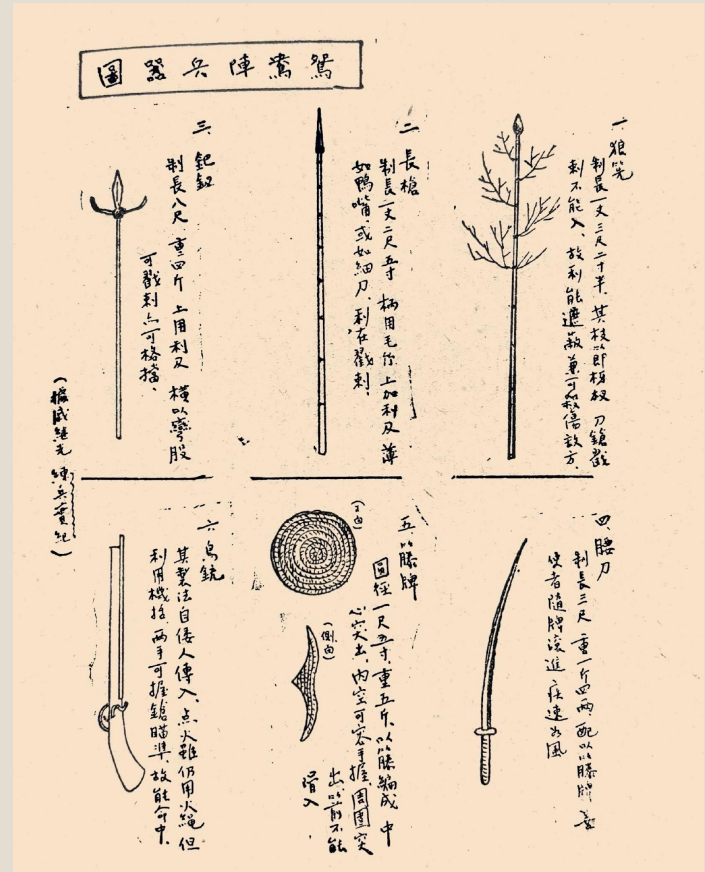 鴛鴦陣兵器圖
一、狼筅
制長一丈三尺二寸半、其枝以即枒杈 刀鎗戳
刺不能入、故利能遮蔽兼可殺傷敵方、
二、長槍
制長一丈二尺五寸 柄用毛竹 上加利刃 薄
如鴨嘴或如細刀、利在戳刺、
三、鈀釵
制長八尺 重四斤 上用利刃 橫以彎股
可戳刺亦可格擋、
(據戚繼光 練兵實紀)
四、腰刀
制長三尺 重一斤四兩、配以藤牌
使者隨牌滾進 疾速如風
五、藤牌
(正面)
圓徑一尺五寸、重五斤、以藤編成 中
心突出、內空可容手握、周圍突
出 箭不能
滑入
(側面)
六、鳥銃
其製法自倭人傳入、点火雖仍用火繩 但
利用機括 兩手可握鎗瞄準、故能命中、